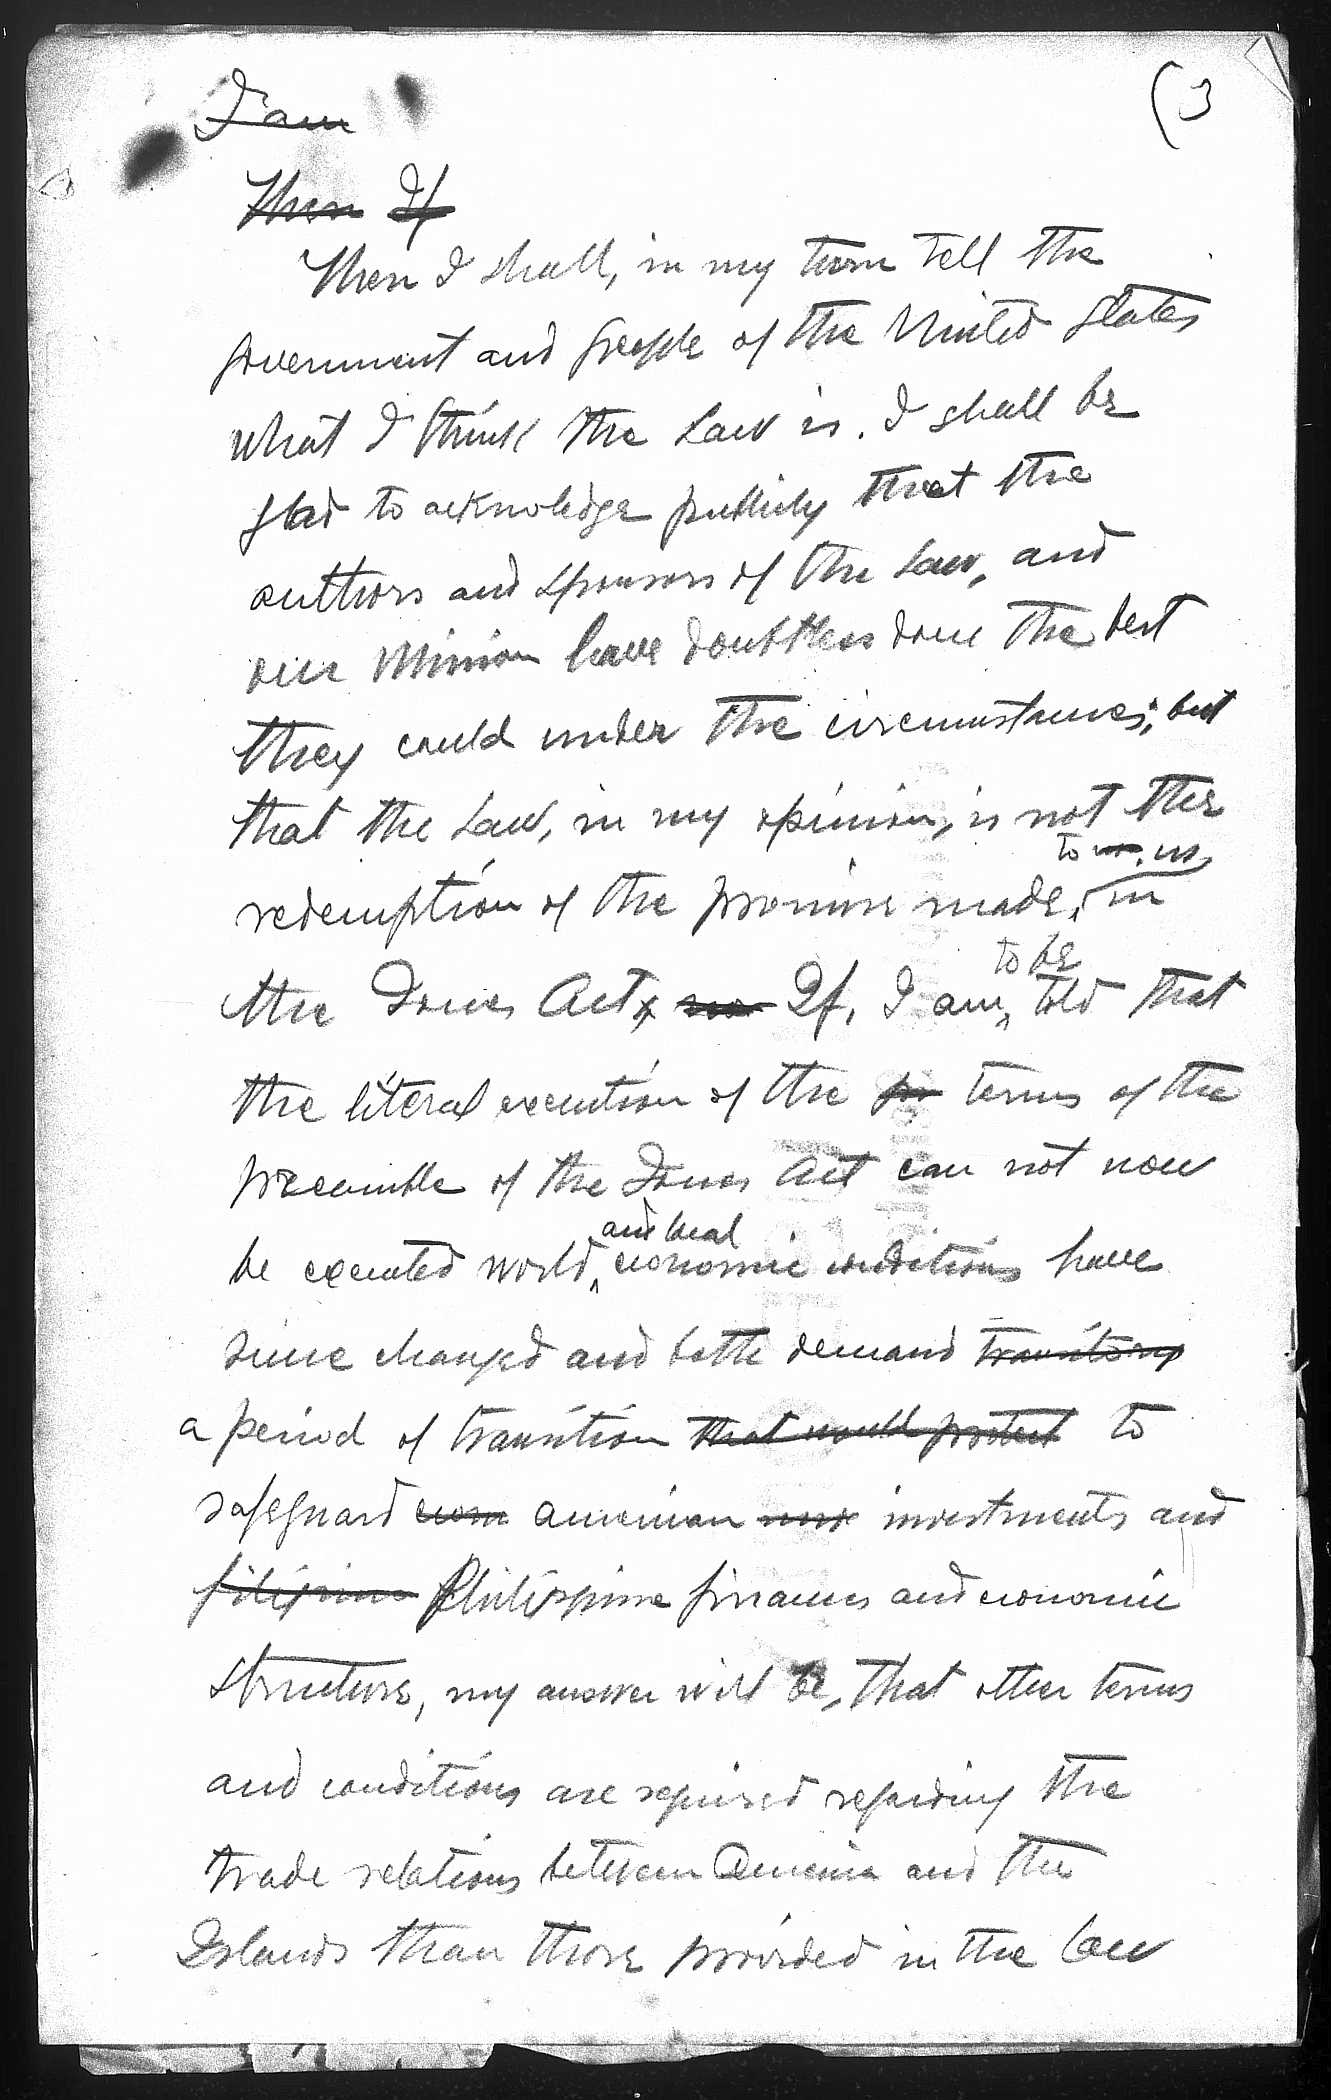 (3
I am
Then If
Then I shall, in my turn tell the
government and people of the United States
what I think the Law is. I shall be
glad to acknowledge publicly that the
authors and sponsors of the Law, and
our Mission have doubtless done the best
they could under the circumstances; but
that the Law, in my opinion, is not the
to us
redemption of the promise made, in
to be
the Jones Act If, I am, told that
the literal execution of the terms of the
preamble of the Jones Act can not now
and local
be executed world, economic conditions have
since changed and both demand transitory
a period of transition that would protect to
safeguard econ American investments and
filipino Philippine finances and economic
structure, my answer will be, that other terms
and conditions are required regarding the
trade relations between America and the
Islands than those provided in the law